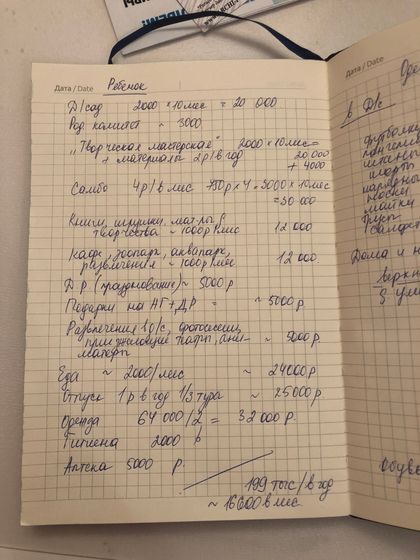 Дата / Date Ребенок
Д/сад 2000 × 10 мес = 20 000
Род. комитет ~ 3000
"Творческая мастерская" 2000 × 10 мес =
+ материалы 2 р/в год 20 000
+ 4000
Самбо 4 р/в мес 750 р × 4 = 3000 × 10 мес
= 30 000
Книги, игрушки, мат-лы д
творчества ~ 1000 р в мес 12 000
кафе, зоопарк, аквапарк,
развлечения ~ 1000 р в мес 12 000
ДР (празднование) ~ 5000 р
Подарки на НГ + ДР = ~ 5000 р.
Развлечения в д/с, фотосессии,
приезжающие театры, ани-
маторы ~ 5000 р.
Еда ~ 2000/мес ~ 24000 р.
Отпуск 1 р в год 1/3 тура ~ 25000 р.
Одежда 64 000/2 = 32 000 р.
Гигиена 2000 р
Аптека 5000 р.
199 тыс/в год
~ 16600 в мес.
Дата / Date
в Д/с
футболк
шорты
носки
майки
Дома и н
верхн
Обувь